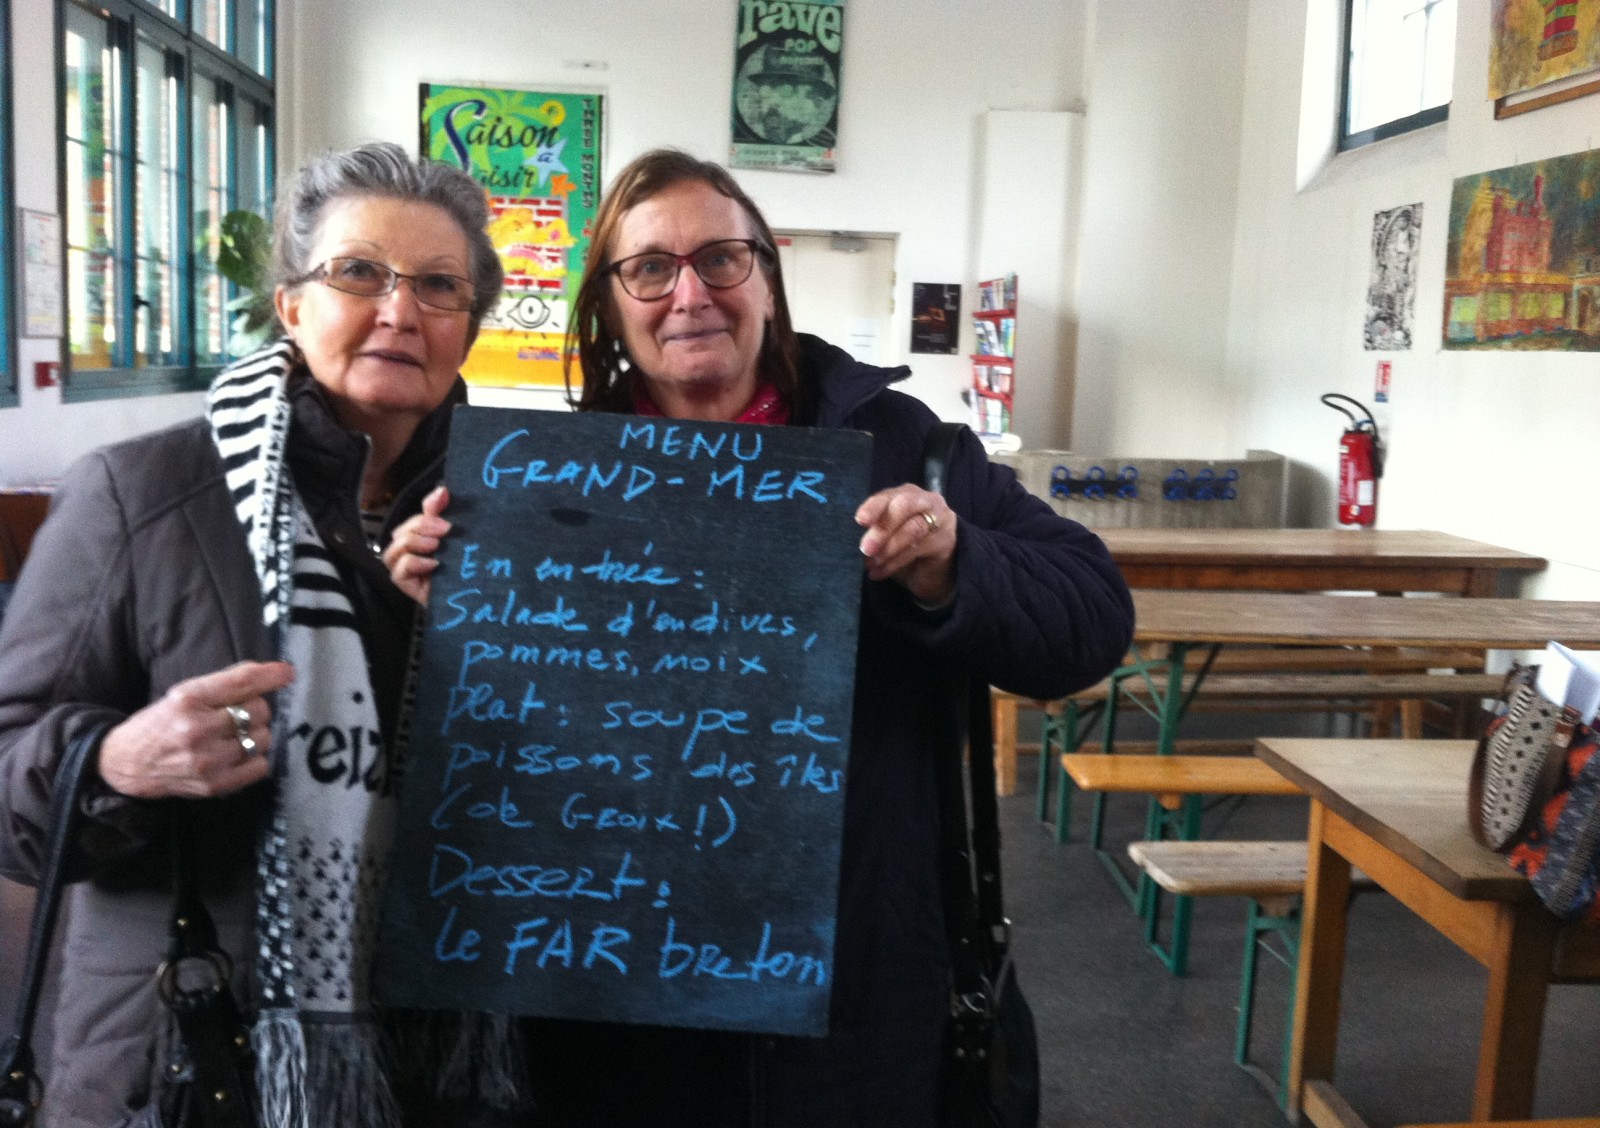 rave
POP
Saison
à
THREE MONTHS
MENU
GRAND-MER
En entrée :
Salade d'endives,
pommes, noix
plat : soupe de
poissons des îles
(de Groix!)
Dessert :
le FAR breton
reiz